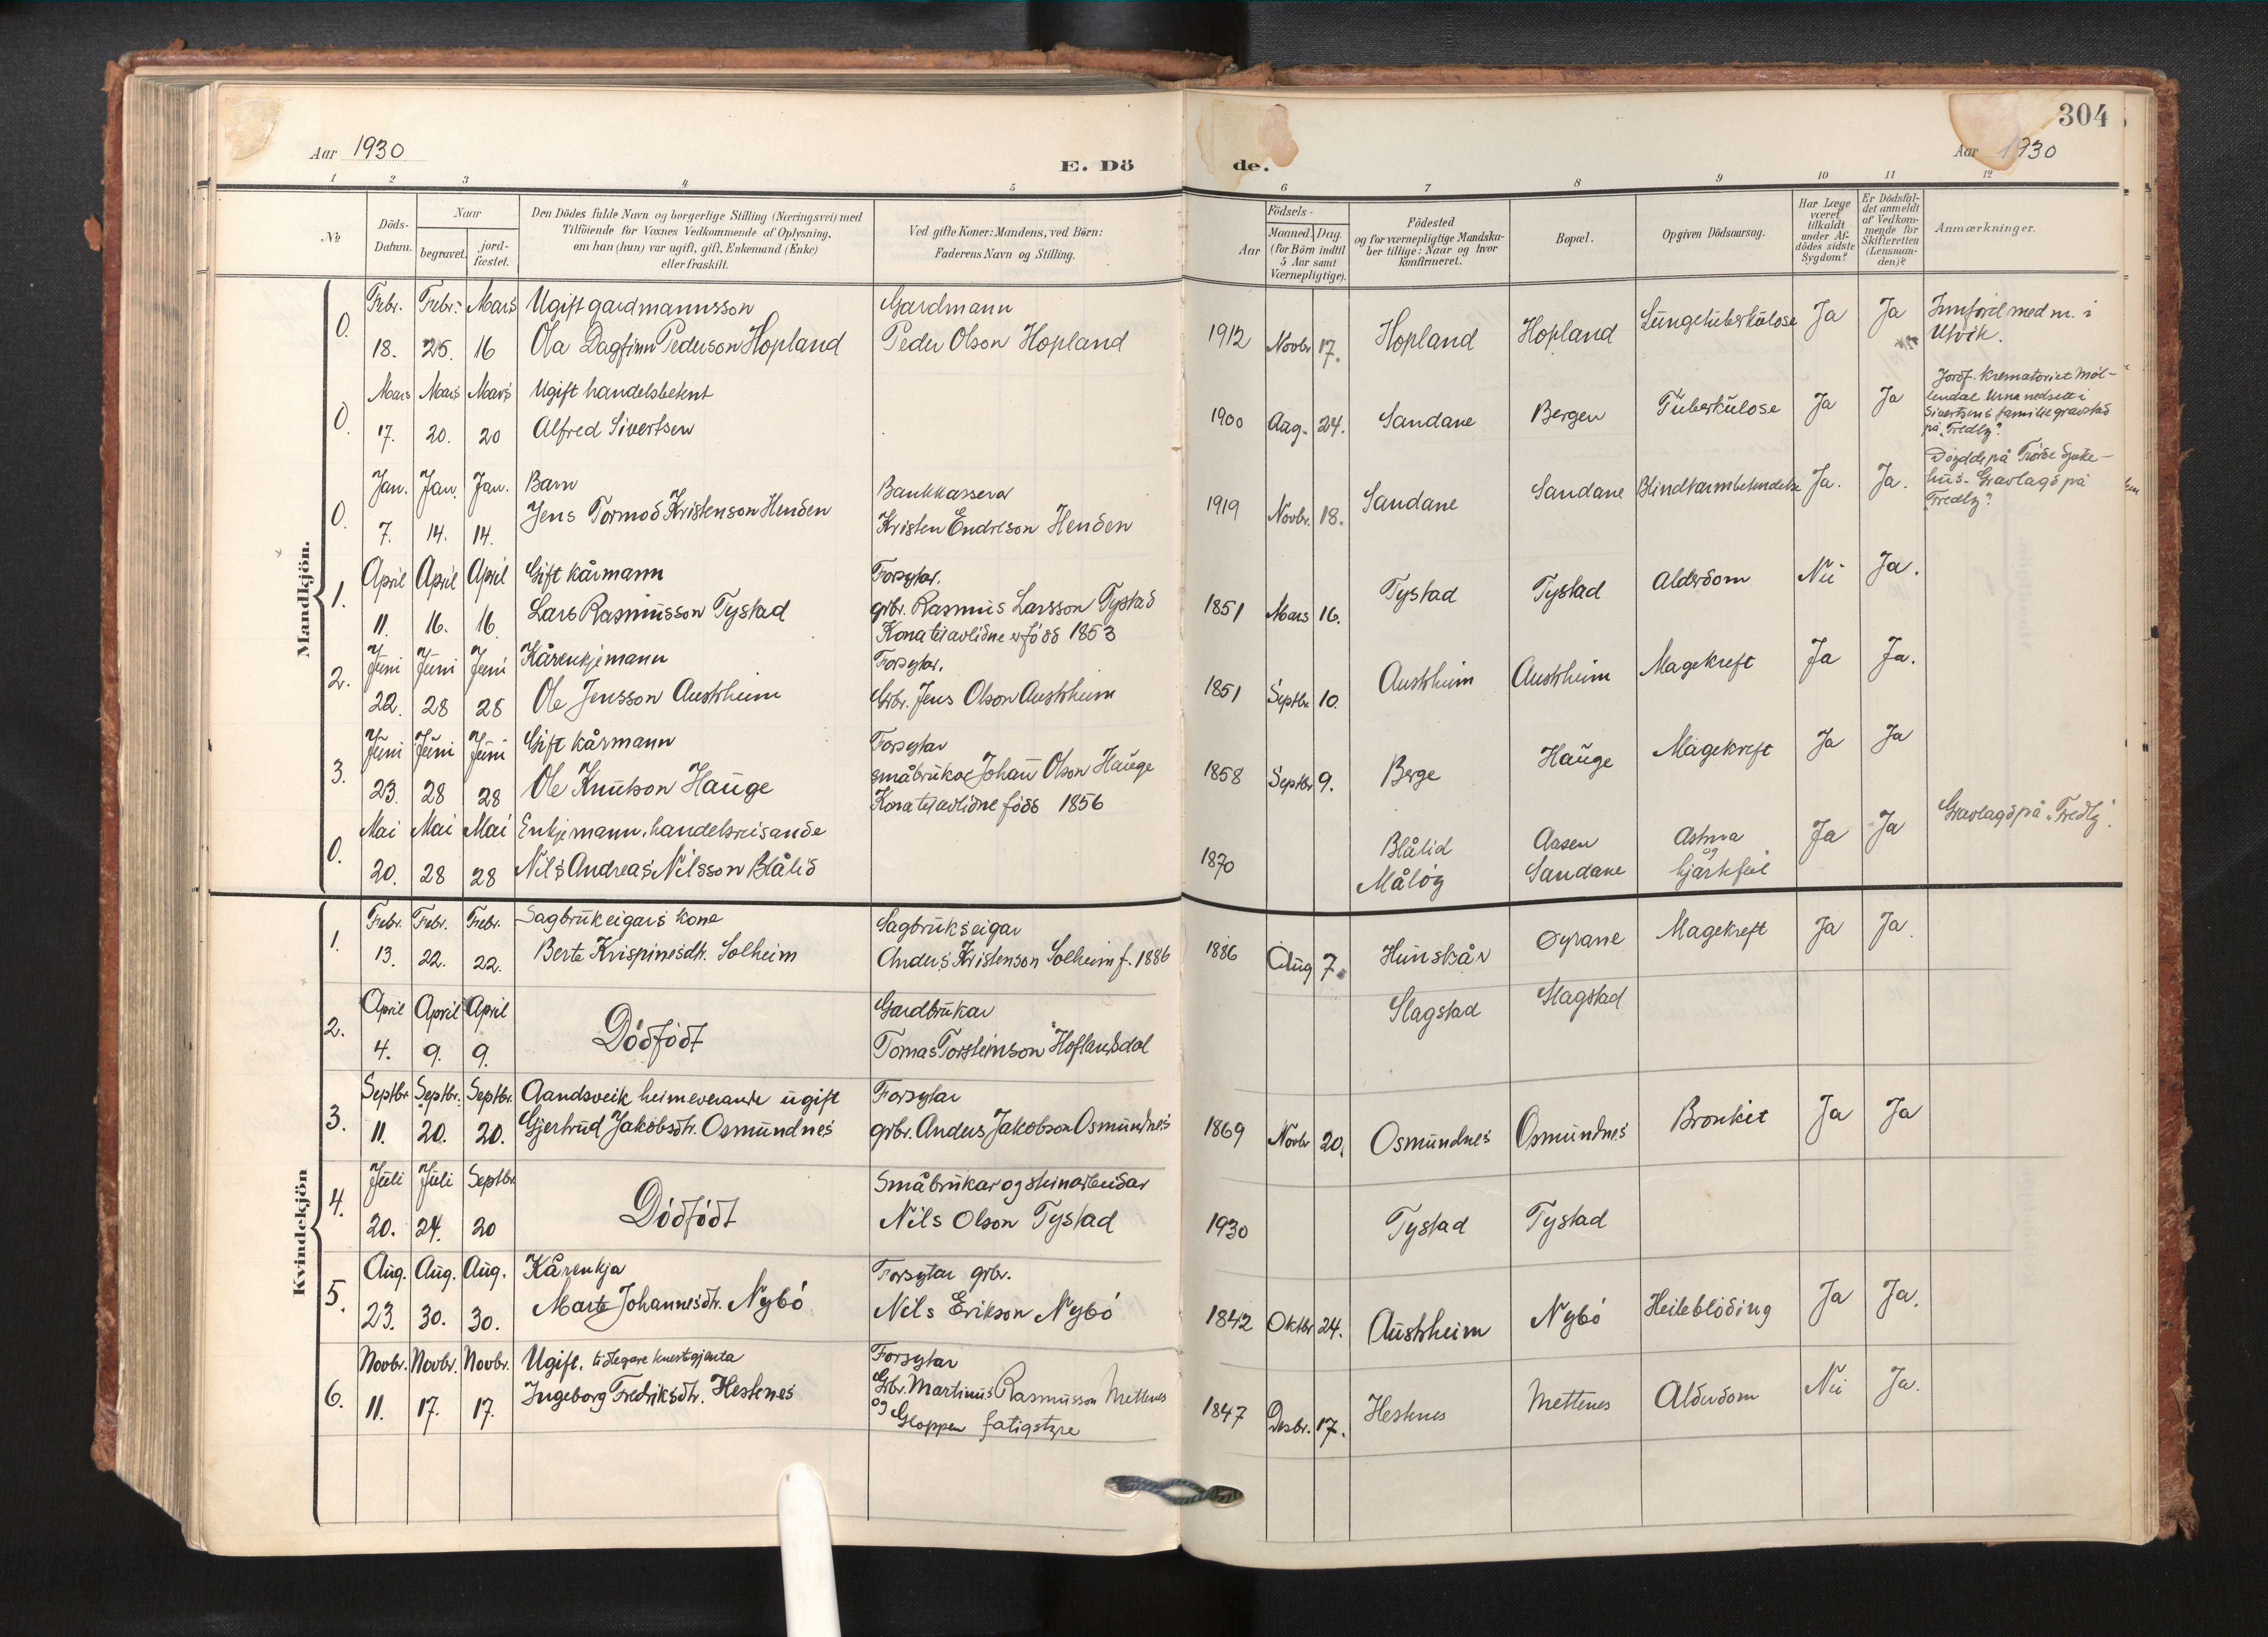 Aar 1930
E. Dö
de.
304
Aar 1930
1 2 3 4 5 6 7 8 9 10 11 12
№
Döds-
Datum.
Naar
begravet.
jord-
fæstet.
Den Dödes fulde Navn og borgerlige Stilling (Næringsvei) med
Tilföiende for Voxnes Vedkommende af Oplysning,
om han (hun) var ugift, gift, Enkemand (Enke)
eller fraskilt.
Ved gifte Koner: Mandens, ved Börn:
Faderens Navn og Stilling.
Födsels-
Aar
Maaned. Dag.
(for Börn indtil
5 Aar samt
Værnepligtige).
Födested
og for værnepligtige Mandska-
ber tillige: Naar og hvor
Konfirmeret.
Bopæl.
Opgiven Dödsaarsag.
Har Læge
været
tilkaldt
under Af-
dödes sidste
Sygdom?
Er Dödsfal-
det anmeldt
af Vedkom-
mende for
Skifteretten
(Lensman-
den)?
Anmærkninger.
Mandkjön.
0. Febr. Febr. Mars Ugift gardmannsson Gardmann
18. 25. 16 Ola Dagfinn Pederson Hopland Peder Olson Hopland
1912 Novbr. 17. Hopland Hopland Lungetuberkulose Ja Ja Innförd med nr. i
Utvik.
0. Mars Mars Mars Ugift handelsbetent
17. 20. 20 Alfred Sivertsen
1900 Aug. 24. Sandane Bergen Tuberkulose Ja Ja Jordf. Krematoriet Möl-
lendal Urna nedsett i
Sivertsens familiegravstad
på „Fredly“.
0. Jan. Jan. Jan. Barn Bankkasserar
7. 14. 14. Jens Tormod Kristenson Henden Kristen Endreson Henden
1919 Novbr. 18. Sandane Sandane Blindtarmbetendelse Ja. Ja. Döydde på Förde Sjuke-
hus. Gravlagd på
„Fredly“.
1. April April April Gift kårmann Forsytar.
11. 16. 16 Lars Rasmusson Tystad grbr. Rasmus Larsson Tystad
Kona til avlidne er född 1853
1851 Mars 16. Tystad Tystad Alderdom Nei Ja.
2. Juni Juni Juni Kårenkjemann Forsytar.
22. 28 28 Ole Jensson Austrheim Grbr. Jens Olson Austrheim
1851 Septbr. 10. Austrheim Austrheim Magekreft Ja Ja.
3. Juni Juni Juni Gift kårmann Forsytar
23. 28 28 Ole Knutson Hauge småbrukar Johan Olson Hauge
Kona til avlidne född 1856
1858 Septbr 9. Berge Hauge Magekreft Ja Ja
0. Mai Mai Mai Enkjemann, handelsreisande
20. 28 28 Nils Andreas Nilsson Blålid
1870 Blålid Aasen Astma Ja Ja Gravlagd på „Fredly“.
Målöy Sandane og hjartefeil
Kvindekjön
1. Febr. Febr. Febr. Sagbrukeigars kone Sagbrukseigar
13. 22. 22. Berte Krispinesdtr. Solheim Anders Kristenson Solheim f. 1886
1886 Aug 7. Hunskår Oyrane Magekreft Ja Ja.
2. April April April Dödfödt Gardbrukar
4. 9. 9. Tomas Torsteinson Hoflandsdal
Slagstad Slagstad
3. Septbr. Septbr. Septbr. Aandsveik heimeverande ugift Forsytar
11. 20. 20. Gjertrud Jakobsdtr. Osmundnes grbr. Anders Jakobson Osmundnes
1869 Novbr 20. Osmundnes Osmundnes Bronkit Ja Ja
4. Juli Juli Septbr Dödfödt Småbrukar og steinarbeidar
20. 24. 20 Nils Olson Tystad
1930 Tystad Tystad
5. Aug. Aug. Aug. Kårenkja Forsytar grbr.
23. 30. 30. Marte Johannesdtr. Nybö Nils Erikson Nybö
1842 Oktbr 24. Austrheim Nybö Heilebloding Ja Ja.
6. Novbr. Novbr. Novbr. Ugift, tidlegare tenestgjenta Forsytar
11. 17. 17. Ingeborg Fredriksdtr. Hestenes Grbr. Martinus Rasmusson Mettenes
og Gloppen fatigstyre
1847 Desbr. 17. Hestenes Mettenes Alderdom Nei Ja.